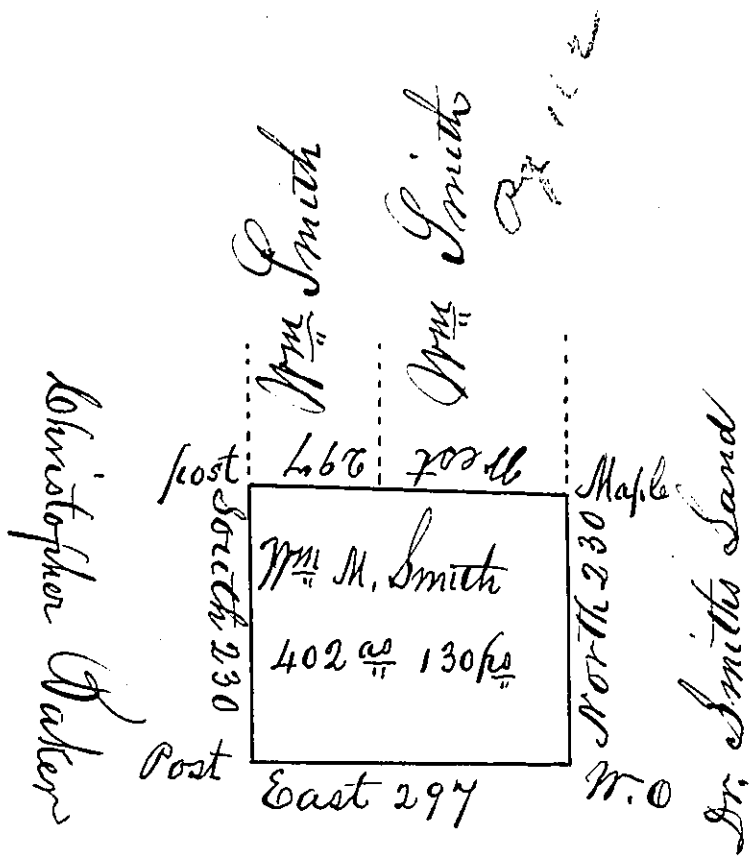 Wm Smith
Wm Smith
Christopher Baker
Post
West 297
Maple
South 230
Wm M. Smith
402 as 130 ps
North 230
Dr. Smiths Land
Post
East 297
W.O